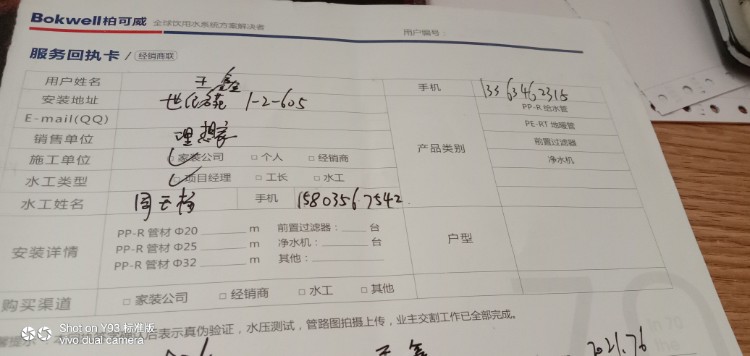 Bokwell柏可威 全球饮用水系统方案解决者 用户编号
服务回执卡 / 经销商联
用户姓名 王鑫 手机 13363462315
安装地址 世纪名苑 1-2-605 PP-R 给水管
E-mail(QQ) PE-RT 地暖管
销售单位 理想家 产品类别 前置过滤器
施工单位 □ 家装公司 □ 个人 □ 经销商 净水机
水工类型 □ 项目经理 □ 工长 □ 水工
水工姓名 周云 手机 15803567542
PP-R 管材 Φ20 m 前置过滤器： 台
安装详情 PP-R 管材 Φ25 m 净水机： 台 户型
PP-R 管材 Φ32 m 其他：
购买渠道 □ 家装公司 □ 经销商 □ 水工 □ 其他
后表示真伪验证，水压测试，管路图拍摄上传，业主交割工作已全部完成。
Shot on Y93 标准版
vivo dual camera
王鑫 2021.7.6